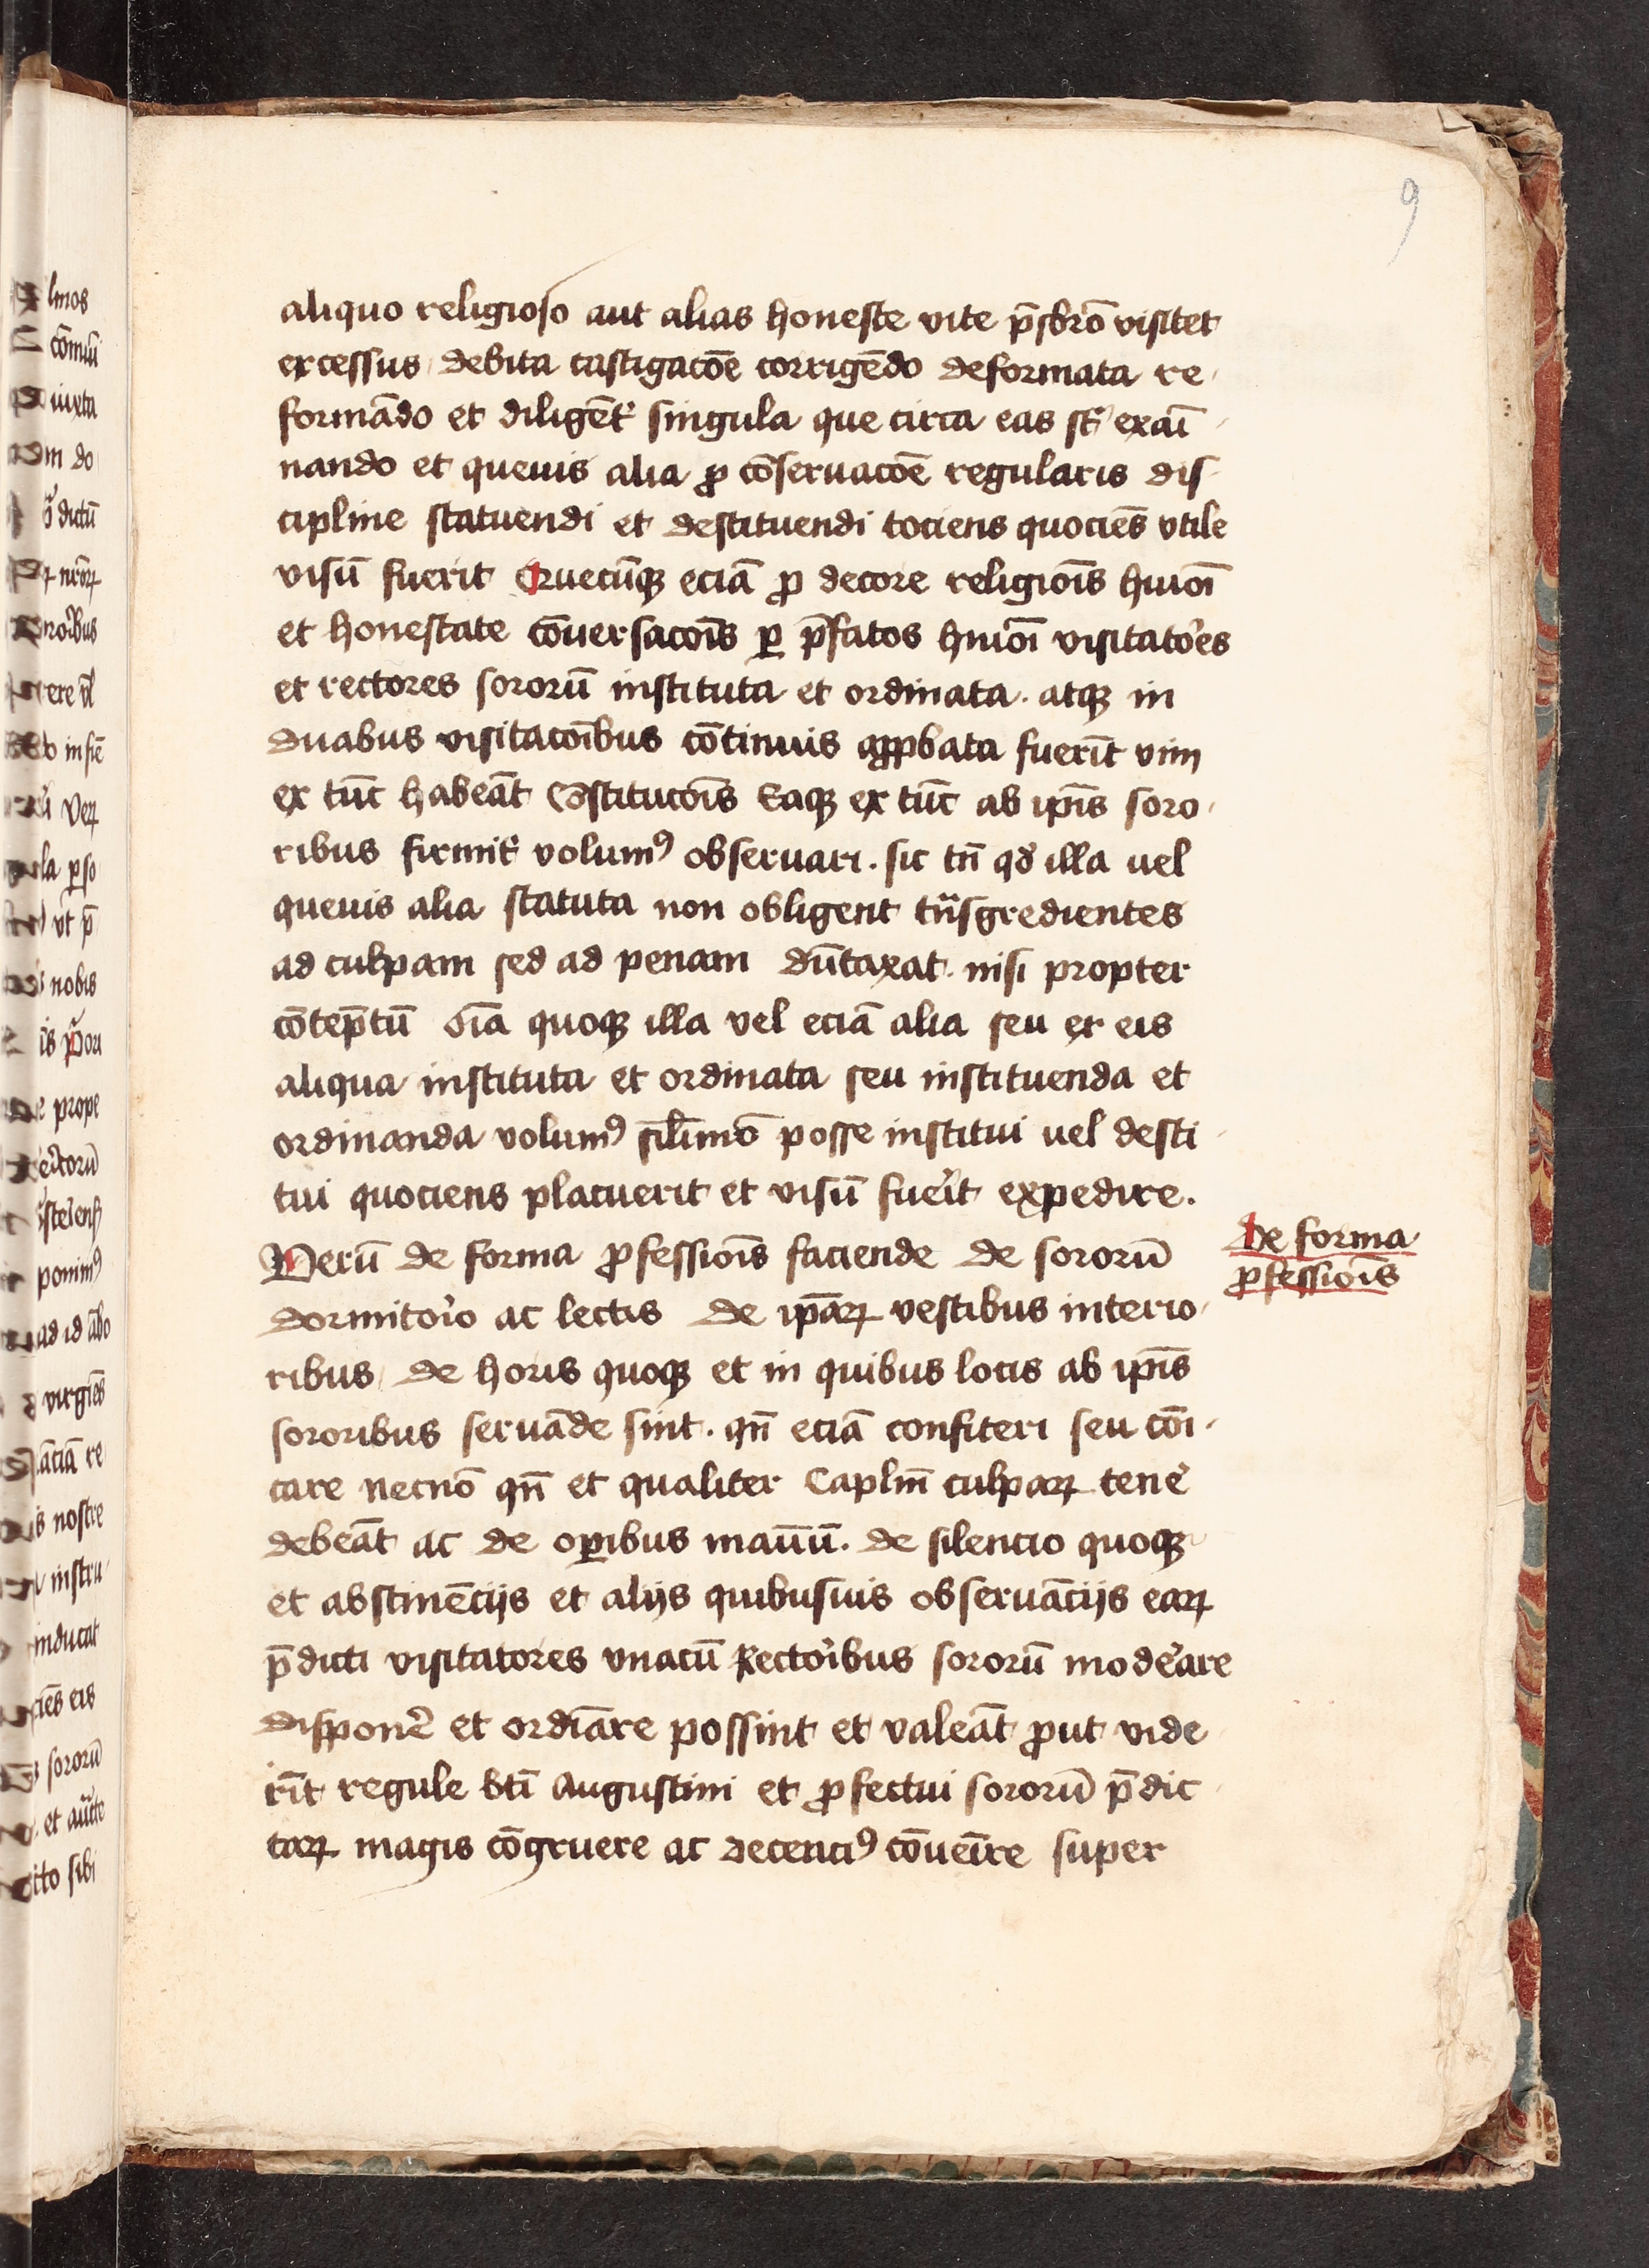 9
aliquo religioso aut alias honeste vite p̄sbr̄o visitet
excessus debita castigacōe corrigēdo deformata re
formādo et diligēt' singula que circa eas st̄ exaī
nando et queuis alia ꝓ cōseruacōe regularis dis
cipline statuendi et destituendi tociens quociēs vtile
visū fuerit Quecūqꝫ eciā ꝓ decore religiōis hm̄oi
et honestate cōuersacōis ꝑ p̄fatos hm̄oi visitatōes
et rectores sororū instituta et ordinata. atqꝫ in
duabus visitacōibus cōtinuis apꝓbata fuerīt vim
ex tūc habeāt Cōstitucōis Eaqꝫ ex tūc ab ip̄is soro
ribus firmit' volumꝰ obseruari. sic tn̄ qd' illa vel
queuis alia statuta non obligent tn̄sgredientes
ad culpam sed ad penam dūtaxat. nisi propter
cōtēptū Oīa quoqꝫ illa vel eciā alia seu ex eis
aliqua instituta et ordinata seu instituenda et
ordinanda volumꝰ sil̄imō posse institui vel desti
tui quociens placuerit et visū fue'it expedire.
Verū de forma ꝓfessiōis faciende de sororū
dormito'io ac lectis de ip̄aꝝ vestibus interio
ribus de horis quoqꝫ et in quibus locis ab ip̄is
sororibus seruāde sint. qn̄ eciā confiteri seu cōi
care necnō qn̄ et qualiter Caplm̄ culpaꝝ tene'
debeāt ac de oꝑibus manūū. de silencio quoqꝫ
et abstinēcijs et alijs quibusuis obseruācijs eaꝝ
p̄dicti visitatores vnacū Recto'ibus sororū mode'are
disponē' et ordīare possint et valeāt ꝓut vide
rīt regule bt̄i Augustini et ꝓfectui sororū p̄dic
taꝝ magis cōgruere ac decenciꝰ cōueīre super
De forma
ꝓfessiōis